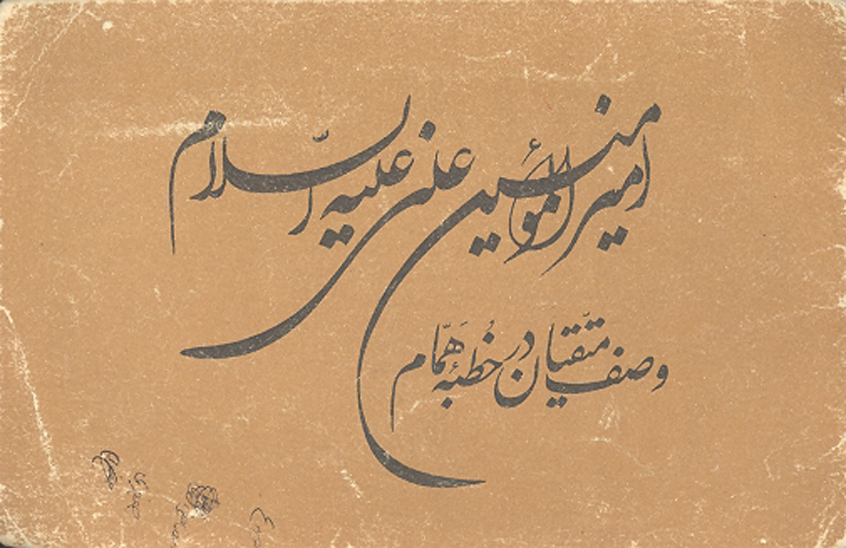 امیرالمؤمنین علی علیه السّلام
وصف متّقیان در خُطبهٔ هَمّام